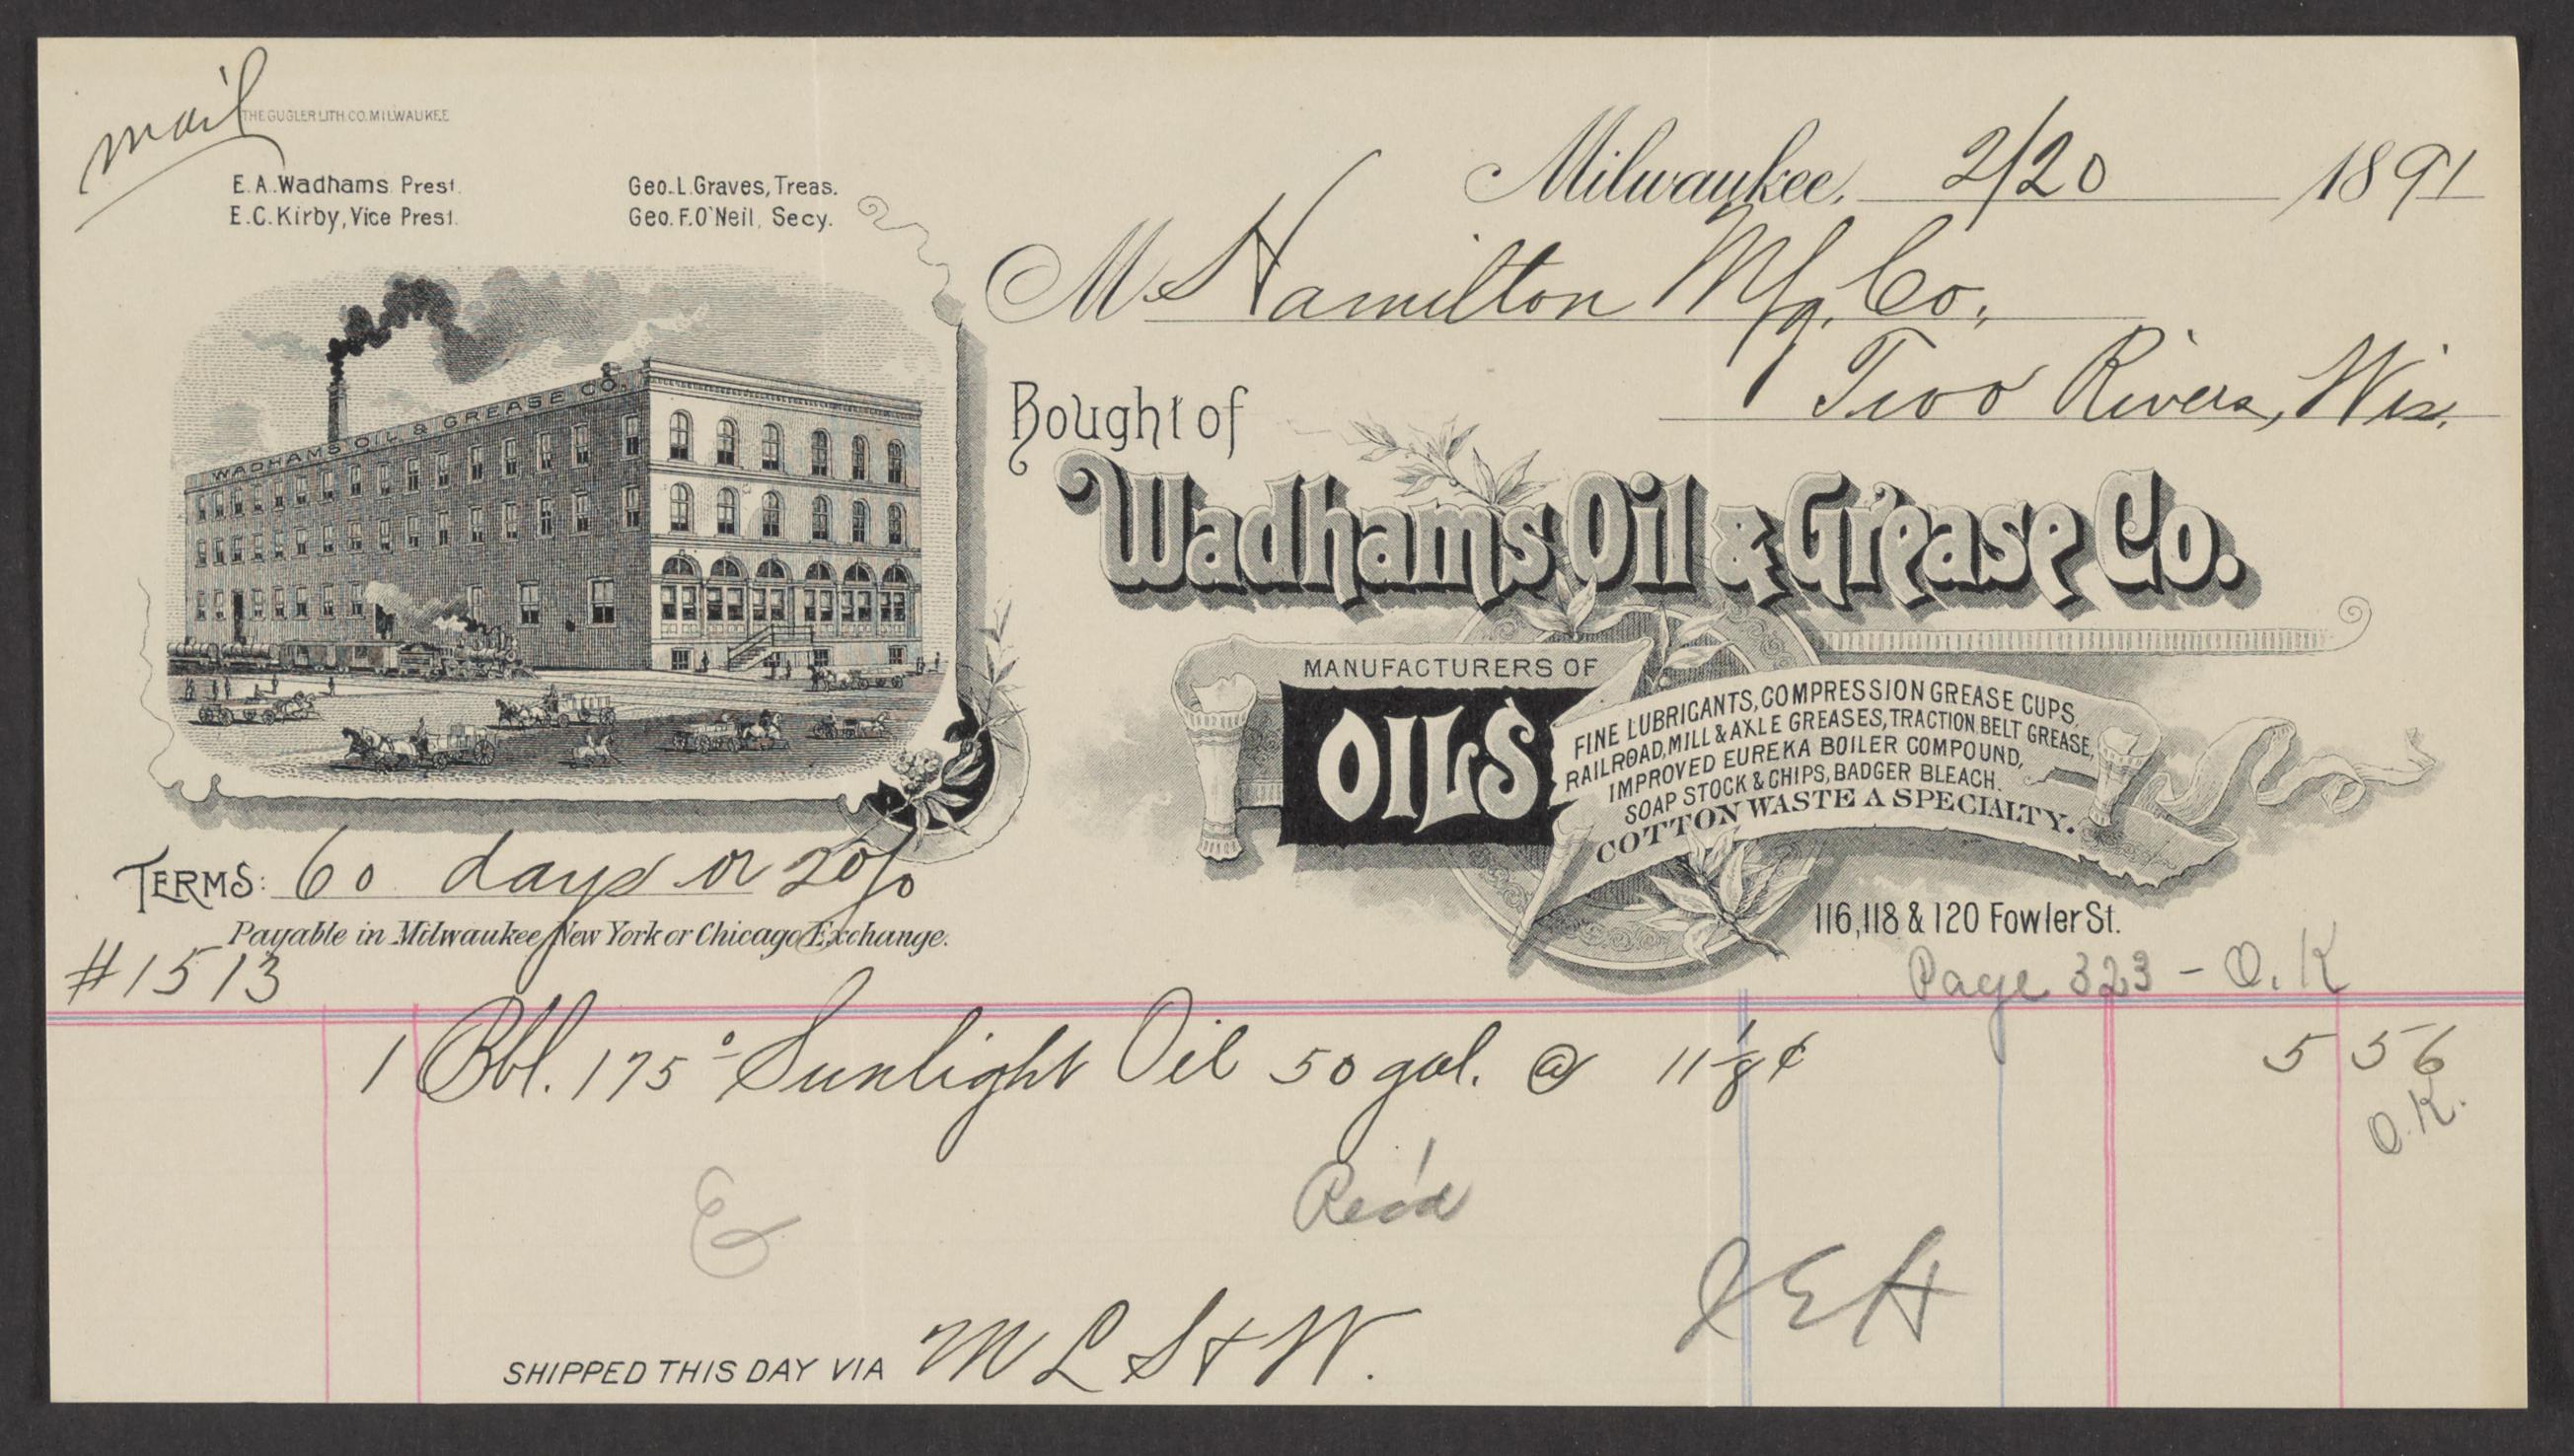 mail
THE GUGLER LITH. CO. MILWAUKEE
E. A. Wadhams Prest.
E. C. Kirby, Vice Prest.
Geo. L. Graves, Treas.
Geo. F. O'Neil, Secy.
Milwaukee, 2/20 1891
M Hamilton Mfg. Co.,
Two Rivers, Wis.
Bought of
WADHAMS OIL & GREASE CO.
Wadhams Oil & Grease Co.
MANUFACTURERS OF
OILS
FINE LUBRICANTS, COMPRESSION GREASE CUPS,
RAILROAD, MILL & AXLE GREASES, TRACTION BELT GREASE,
IMPROVED EUREKA BOILER COMPOUND,
SOAP STOCK & CHIPS, BADGER BLEACH.
COTTON WASTE A SPECIALTY.
116, 118 & 120 Fowler St.
TERMS: 60 days or 2%
Payable in Milwaukee, New York or Chicago Exchange.
#1513
Page 323 - O.K
1 Bbl. 175° Sunlight Oil 50 gal. @ 11 1/8 ¢ 5 56
O.K.
Rec'd
JEH
SHIPPED THIS DAY VIA M L S & W.